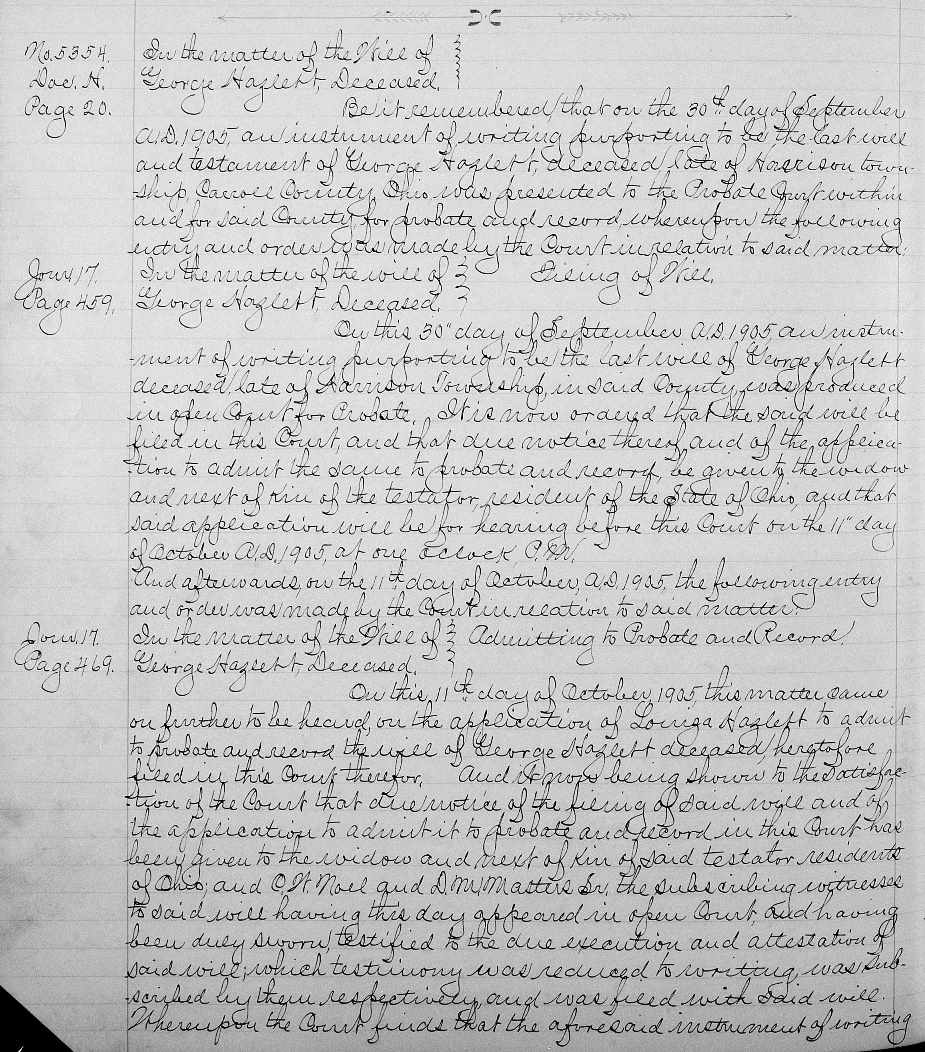 No. 5354. In the matter of the Will of
Doc. H. George Hazlett, Deceased.
Page 20. Be it remembered, that on the 30th day of September
A.D. 1905, an instrument of writing purporting to be the last will
and testament of George Hazlett, deceased, late of Harrison town-
ship, Carroll County, Ohio was presented to the Probate Court within
and for said County, for probate and record, whereupon the following
entry and order was made by the Court in relation to said matter:
Jour. 17. In the matter of the will of Filing of Will.
Page 459. George Hazlett, Deceased.
On this 30" day of September A.D. 1905, an instru-
-ment of writing purporting to be the last will of George Hazlett
deceased, late of Harrison Township, in said County, was produced
in open Court for Probate. It is now ordered that the said will be
filed in this Court, and that due notice thereof, and of the applica-
-tion to admit the same to probate and record, be given to the widow
and next of kin of the testator, resident of the State of Ohio, and that
said application will be for hearing before this Court on the 11" day
of October A.D. 1905, at one o'clock, P.M.
And afterwards, on the 11th day of October, A.D. 1905, the following entry
and order was made by the Court in relation to said matter.
Jour. 17. In the matter of the Will of Admitting to Probate and Record
Page 469. George Hazlett, Deceased.
On this, 11th day of October, 1905, this matter came
on further to be heard, on the application of Louiza Hazlett to admit
to probate and record the will of George Hazlett deceased, heretofore
filed in this Court therefor. And it now being shown to the satisfac-
-tion of the Court that due notice of the filing of said will and of
the application to admit it to probate and record in this Court has
been given to the widow and next of kin of said testator residents
of Ohio; and C. W. Noel and D. M. Masters Sr. the subscribing witnesses
to said will having this day appeared in open Court, and having
been duly sworn, testified to the due execution and attestation of
said will; which testimony was reduced to writing, was sub-
-scribed by them respectively, and was filed with said will.
Whereupon the Court finds that the aforesaid instrument of writing